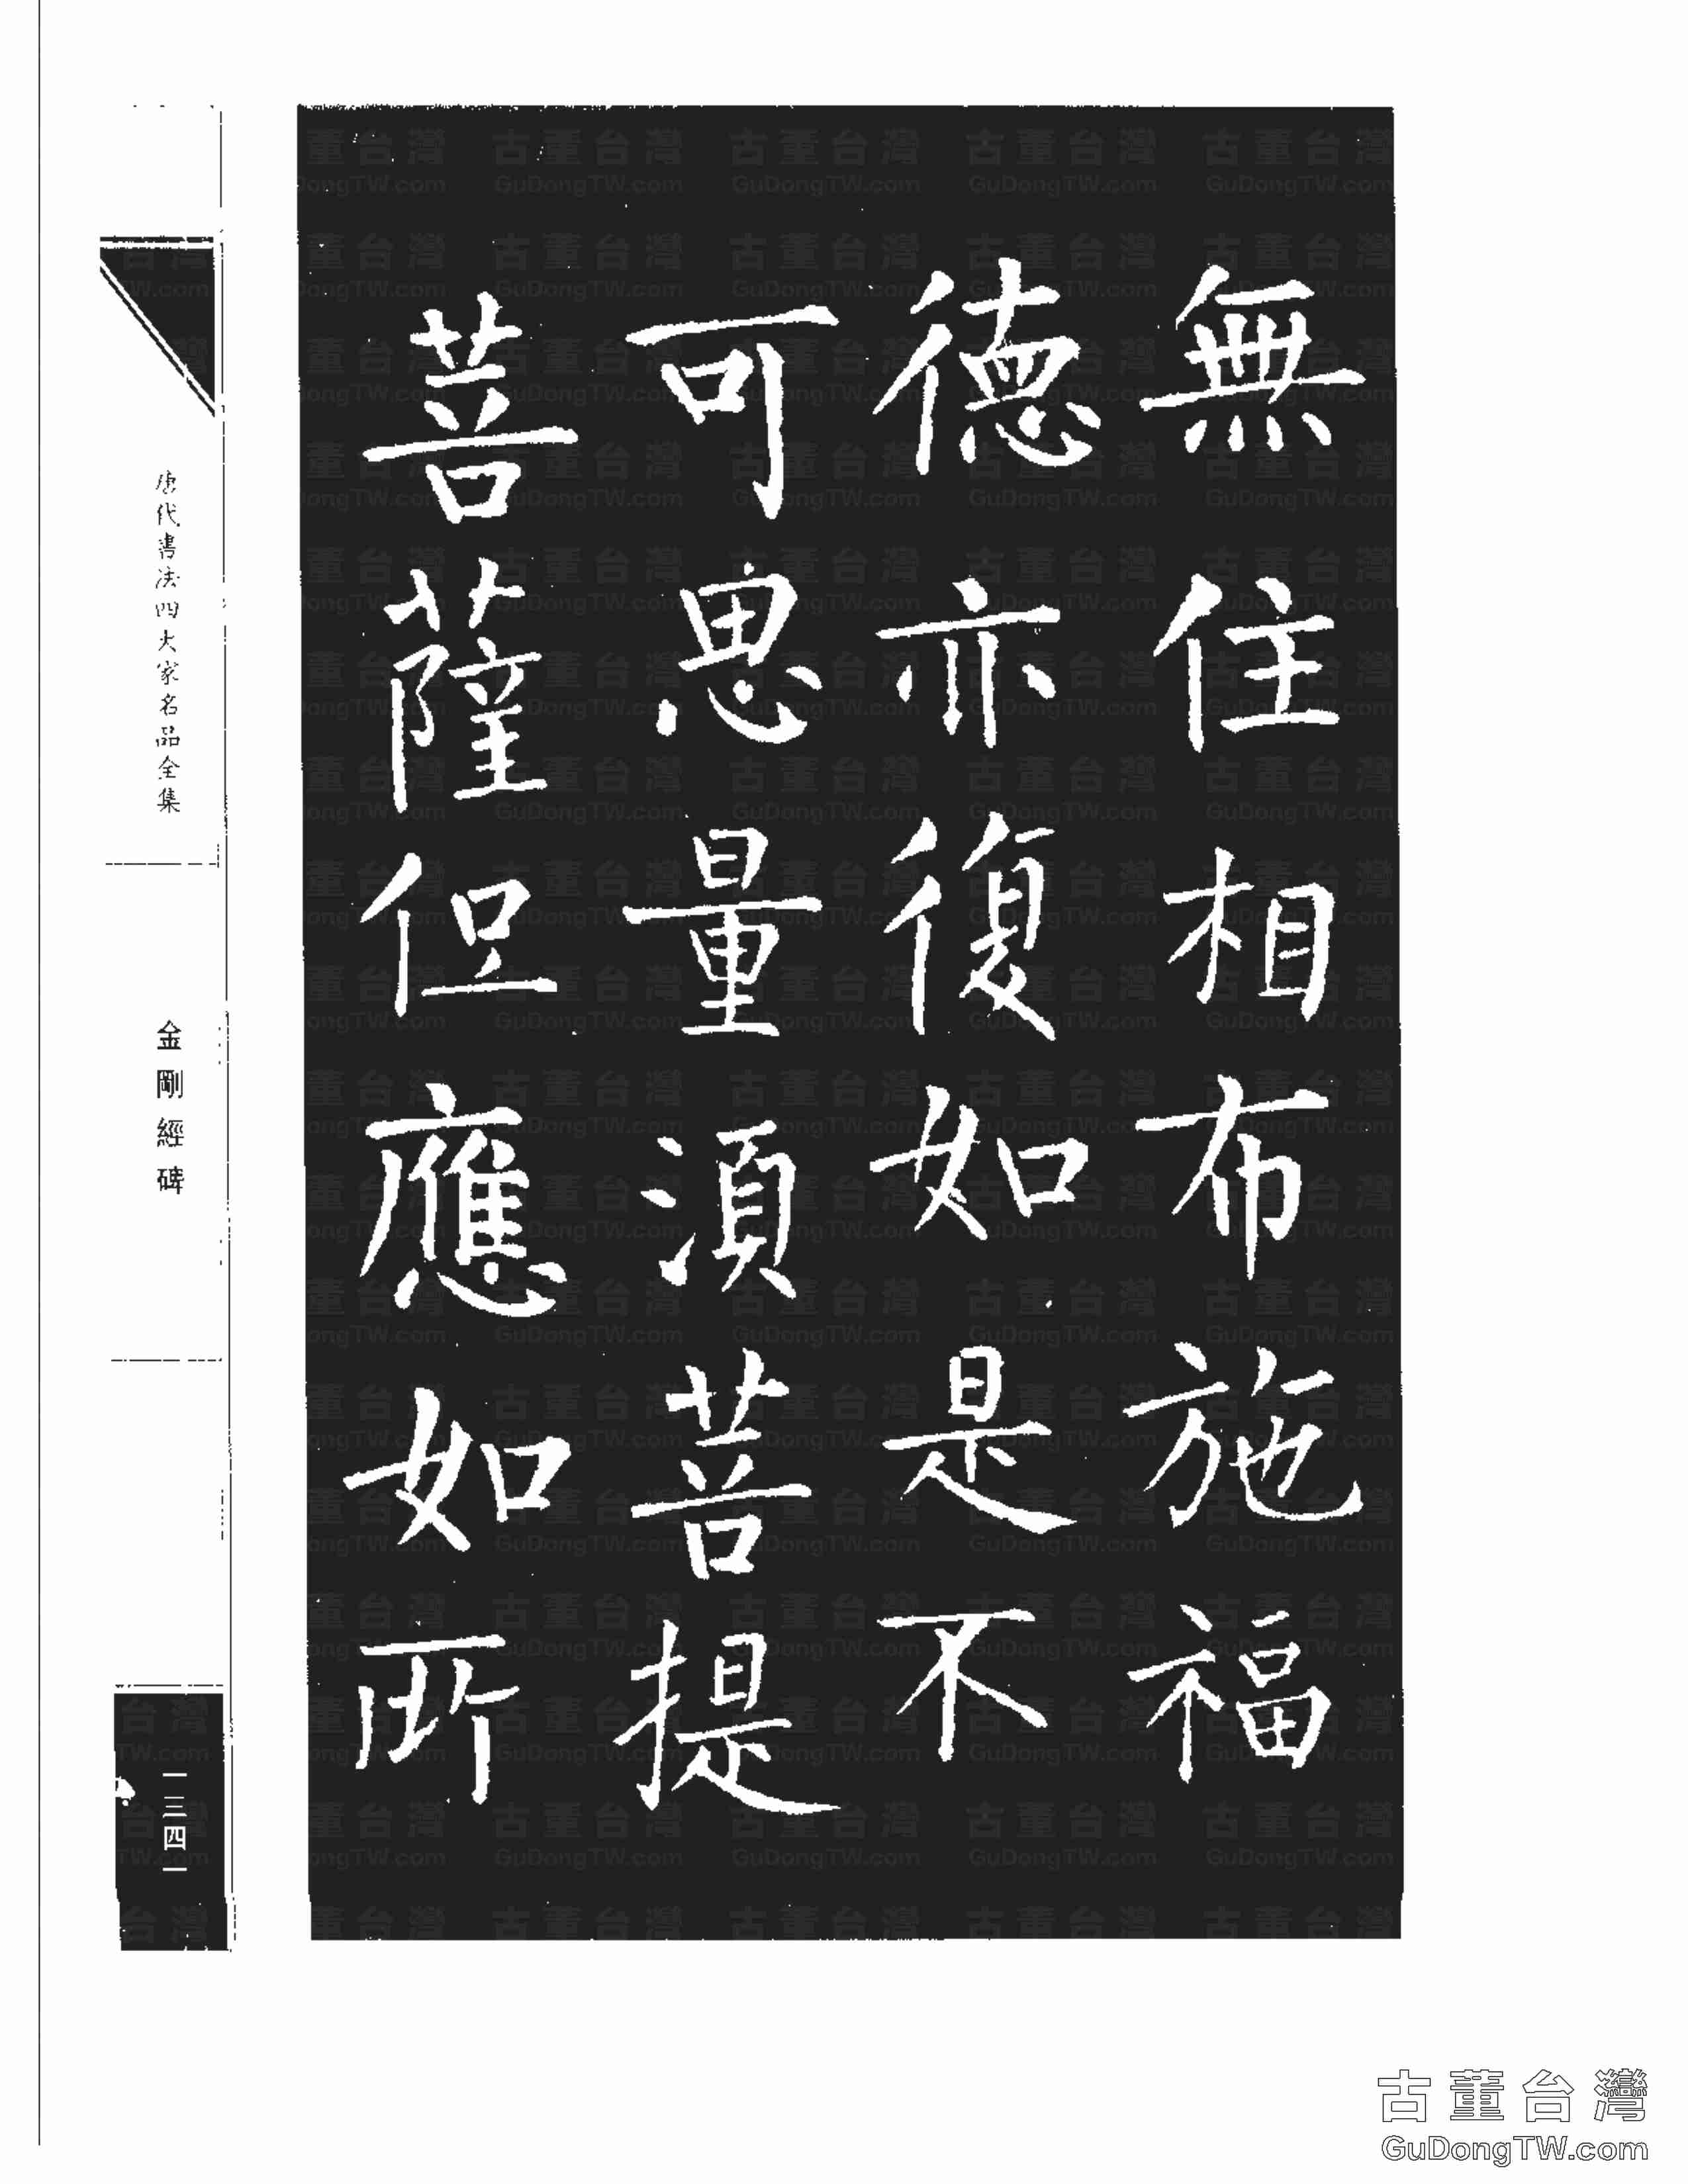 無住相布施福
德亦復如是不
可思量須菩提
菩薩但應如所
唐代書法四大家名品全集
金剛經碑
一三四一
古董台灣
GuDongTW.com